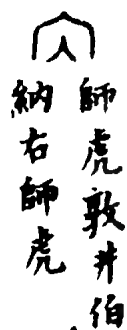 師虎敦井伯
納右師虎